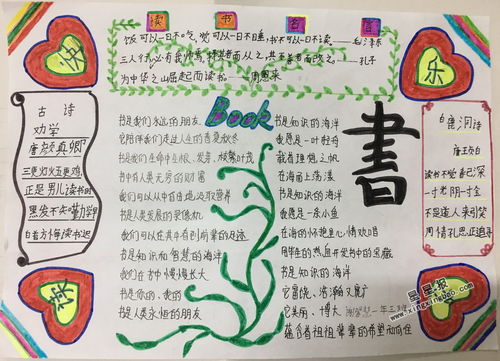 读书名言
饭可以一日不吃，觉可以一日不睡，书不可以一日不读——毛泽东
三人行，必有我师焉，择其善者而从之，其不善者而改之——孔子
为中华之崛起而读书——周恩来
快
乐
读
古诗
劝学
唐颜真卿
三更灯火五更鸡
正是男儿读书时
黑发不知勤学早
白首方悔读书迟
Book
书是我们永远的朋友
它陪伴我们走过人生的春夏秋冬
书是我们的生命中生根、发芽、枝繁叶茂
书中有人类无穷的财富
我们可以从中自由地汲取营养
书是人类发展的录像机
我们可以在其中看到前辈的足迹
书是知识和智慧的海洋
我们在书中慢慢长大
书是你的、我的
书是人类永恒的朋友
书是知识的海洋
我愿是一叶轻舟
载着理想之帆
在海面上荡漾
书是知识的海洋
我愿是一条小鱼
在海的怀抱里心情欢唱
用毕生的热血开发书中的宝藏
书是知识的海洋
它富饶、浩瀚又宽广
它美丽、博大
蕴含着祖祖辈辈的希望和向往
一年三班
書
白鹿洞诗
唐王贞白
读书不觉春已深
一寸光阴一寸金
不是道人来引笑
周情孔思正追寻
星星报
www.xingxingbao.com